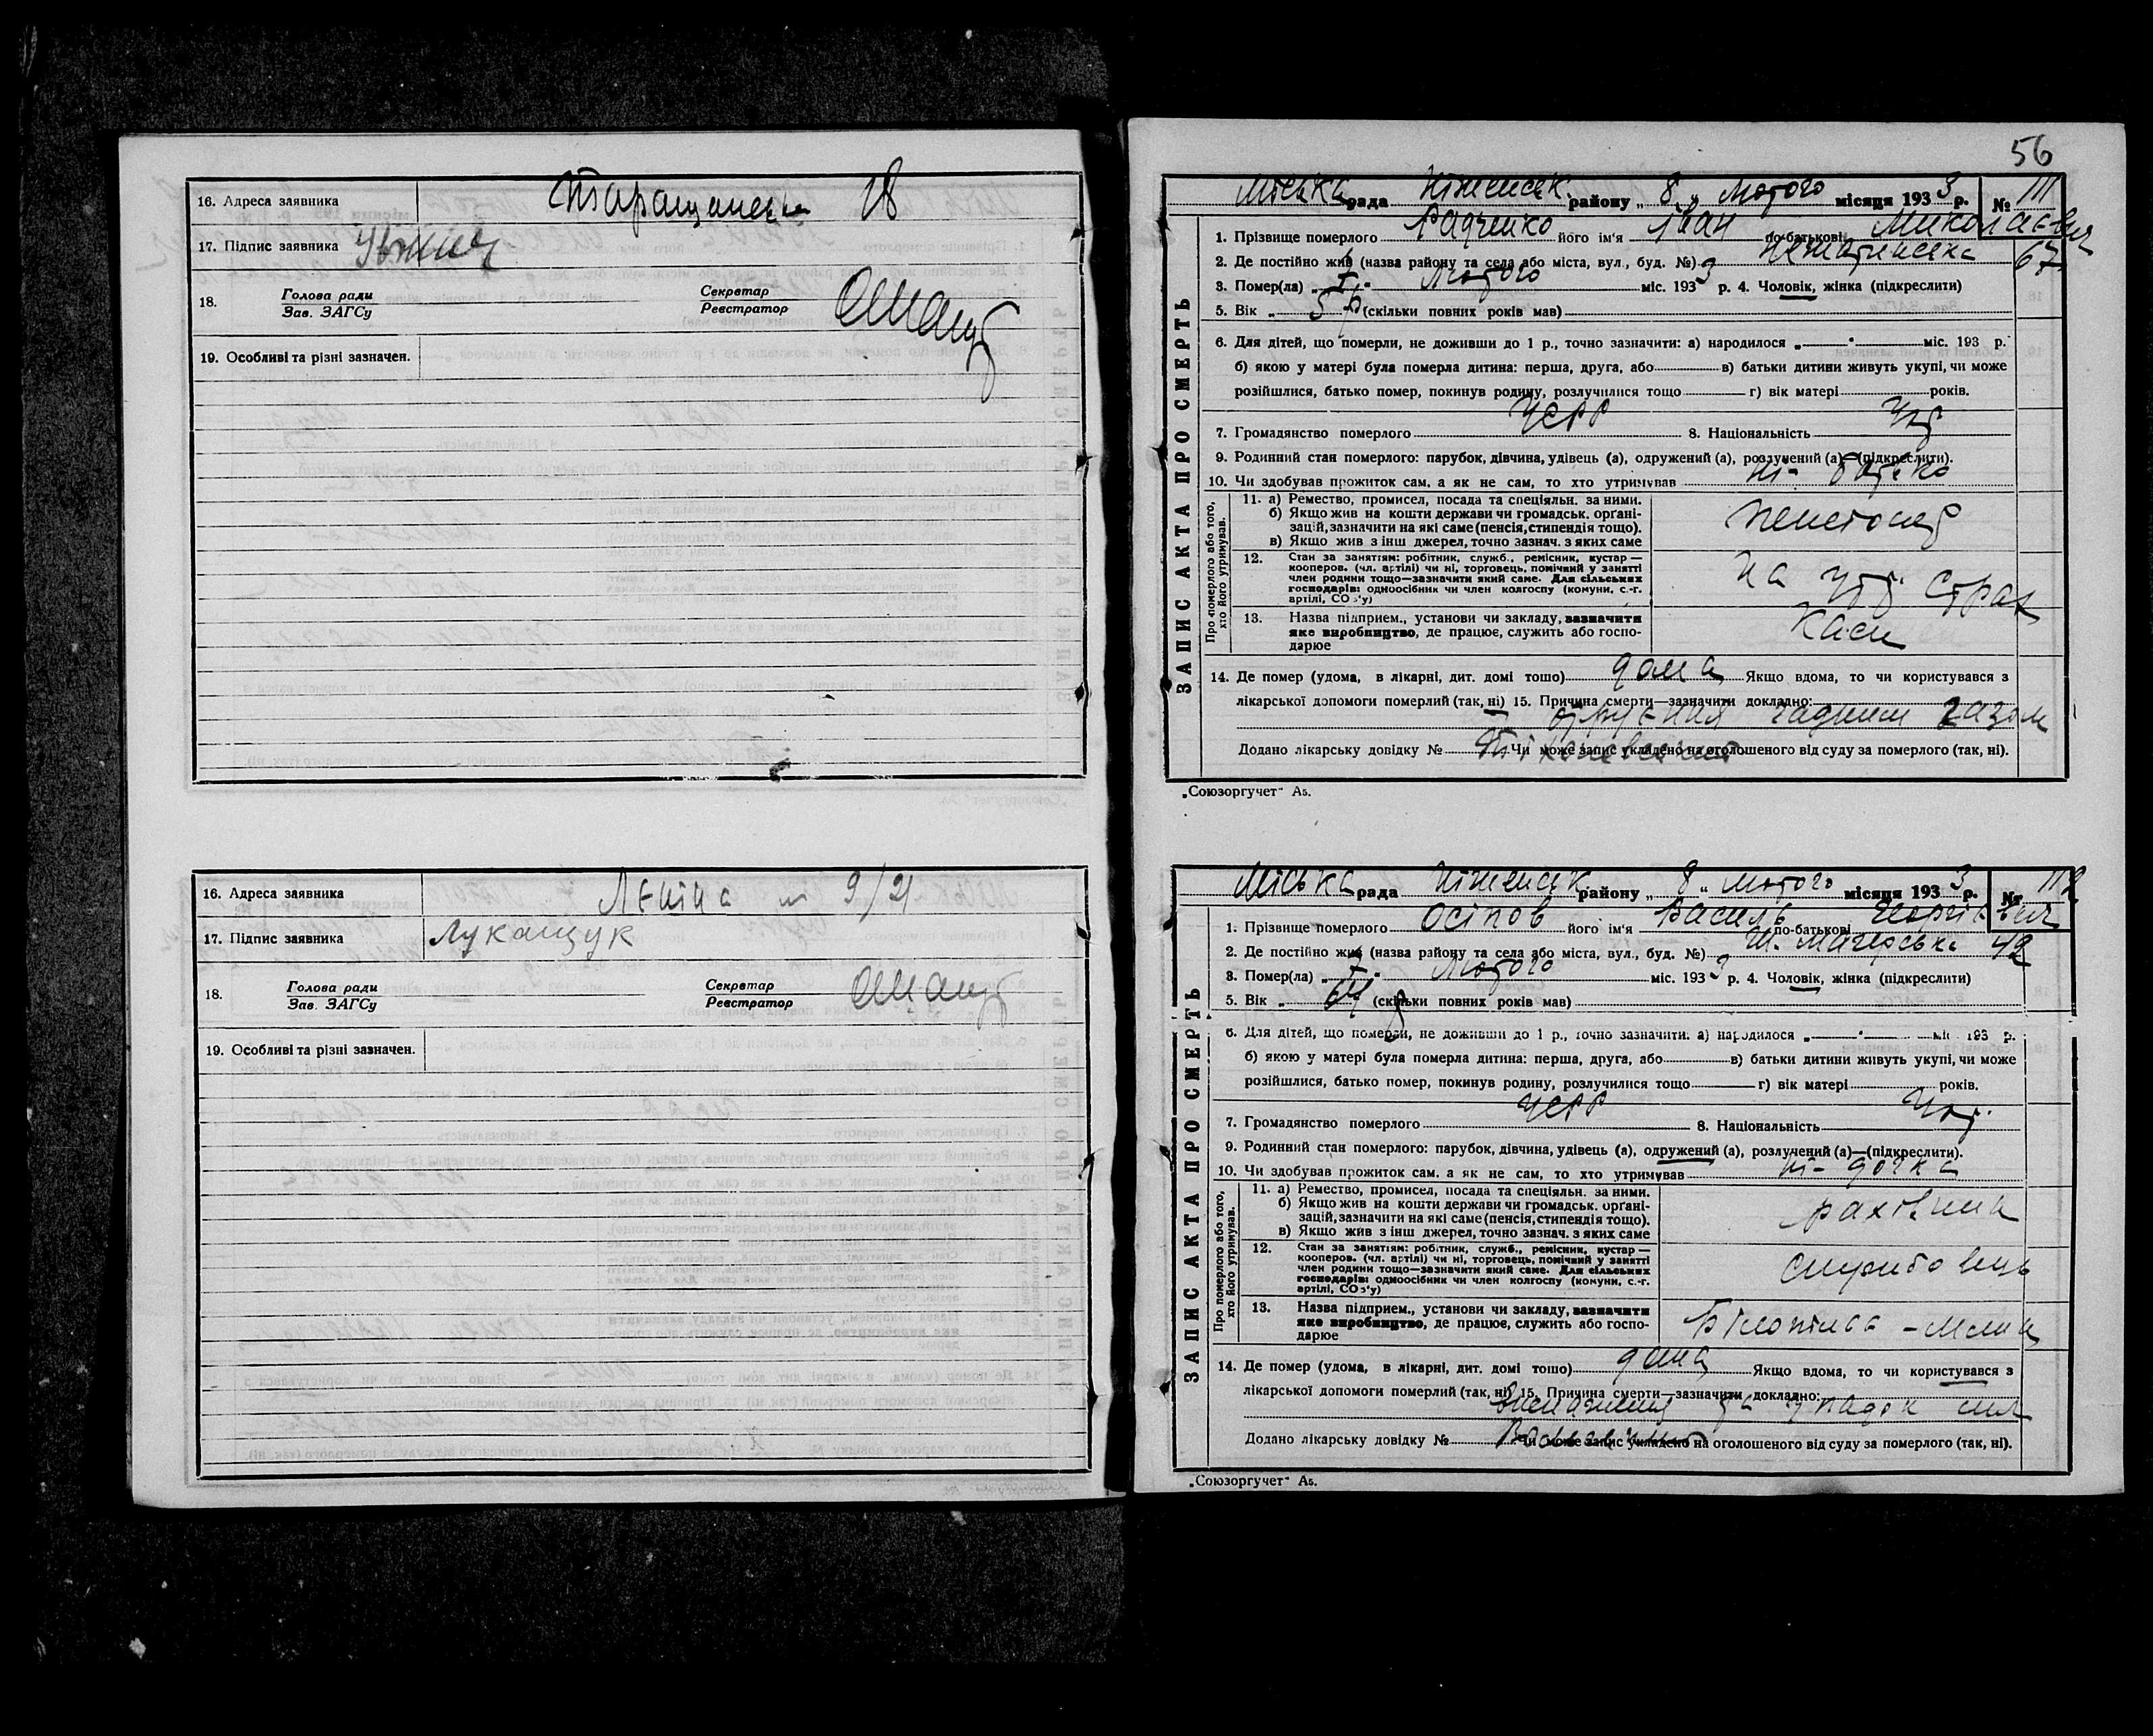 16. Адреса заявника Таращанська 18
17. Підпис заявника
18. Голова ради
Зав. ЗАГСу
Секретар
Реєстратор
19. Особливі та різні зазначен.
16. Адреса заявника Леніна 9/21
17. Підпис заявника Лукащук
18. Голова ради
Зав. ЗАГСу
Секретар
Реєстратор
19. Особливі та різні зазначен.
56
ЗАПИС АКТА ПРО СМЕРТЬ
Міська рада Ніженськ. району „ 8 „ Лютого місяця 193 3 р. № 111
1. Прізвище померлого Радченко його ім'я Іван по-батькові Миколаєвич
2. Де постійно жив (назва району та села або міста, вул., буд. №) 67
3. Помер(ла) „ 7 " Лютого міс. 193 3 р. 4. Чоловік, жінка (підкреслити)
5. Вік „ 5 р (скільки повних років мав)
6. Для дітей, що померли, не доживши до 1 р., точно зазначити: а) народилося „ " міс. 193 р.
б) якою у матері була померла дитина: перша, друга, або в) батьки дитини живуть укупі, чи може
розійшлися, батько помер, покинув родину, розлучилися тощо г) вік матері років.
7. Громадянство померлого УСРР 8. Національність Укр
9. Родинний стан померлого: парубок, дівчина, удівець (а), одружений (а), розлучений (а)—(підкреслити).
10. Чи здобував прожиток сам, а як не сам, то хто утримував ні - батько
Про померлого або того, хто його утримував.
11. а) Ремество, промисел, посада та спеціяльн. за ними.
б) Якщо жив на кошти держави чи громадськ. орґані-
зацій, зазначити на які саме (пенсія, стипендія тощо).
в) Якщо жив з інш джерел, точно зазнач. з яких саме
Пенсіонер
12. Стан за заняттям: робітник, служб., ремісник, кустар—
кооперов. (чл. артілі) чи ні, торговець, помічний у занятті
член родини тощо—зазначити який саме. Для сільських
господарів: одноосібник чи член колгоспу (комуни, с.-г.
артілі, СОз'у)
на утр. Страх
13. Назва підприєм., установи чи закладу, зазначити
яке виробництво, де працює, служить або госпо-
дарює
Каси
14. Де помер (удома, в лікарні, дит. домі тощо) дома Якщо вдома, то чи користувався з
лікарської допомоги померлий (так, ні) 15. Причина смерти—зазначити докладно:
отруєння чадним газом
Додано лікарську довідку № Чи може запис укладено на оголошеного від суду за померлого (так, ні).
„Союзоргучет" А5.
ЗАПИС АКТА ПРО СМЕРТЬ
Міська рада Ніженськ. району „ 8 „ Лютого місяця 193 3 р. № 112
1. Прізвище померлого Осіпов його ім'я Василь по-батькові Георгіевич
2. Де постійно жив (назва району та села або міста, вул., буд. №) Ш. Магерська 42
3. Помер(ла) „ 7 " Лютого міс. 193 3 р. 4. Чоловік, жінка (підкреслити)
5. Вік „ 64 р (скільки повних років мав)
6. Для дітей, що померли, не доживши до 1 р., точно зазначити: а) народилося „ " міс 193 р.
б) якою у матері була померла дитина: перша, друга, або в) батьки дитини живуть укупі, чи може
розійшлися, батько помер, покинув родину, розлучилися тощо г) вік матері років.
7. Громадянство померлого УСРР 8. Національність Укр.
9. Родинний стан померлого: парубок, дівчина, удівець (а), одружений (а), розлучений (а)—(підкреслити).
10. Чи здобував прожиток сам, а як не сам, то хто утримував ні - дочка
Про померлого або того, хто його утримував.
11. а) Ремество, промисел, посада та спеціяльн. за ними.
б) Якщо жив на кошти держави чи громадськ. орґані-
зацій, зазначити на які саме (пенсія, стипендія тощо).
в) Якщо жив з інш джерел, точно зазнач. з яких саме
рахівник
12. Стан за заняттям: робітник, служб., ремісник, кустар—
кооперов. (чл. артілі) чи ні, торговець, помічний у занятті
член родини тощо—зазначити який саме. Для сільських
господарів: одноосібник чи член колгоспу (комуни, с.-г.
артілі, СОз'у)
службовець
13. Назва підприєм., установи чи закладу, зазначити
яке виробництво, де працює, служить або госпо-
дарює
14. Де помер (удома, в лікарні, дит. домі тощо) дома Якщо вдома, то чи користувався з
лікарської допомоги померлий (так, ні) 15. Причина смерти—зазначити докладно:
виснаження та упадок сил
Додано лікарську довідку № Чи може запис укладено на оголошеного від суду за померлого (так, ні).
„Союзоргучет" А5.